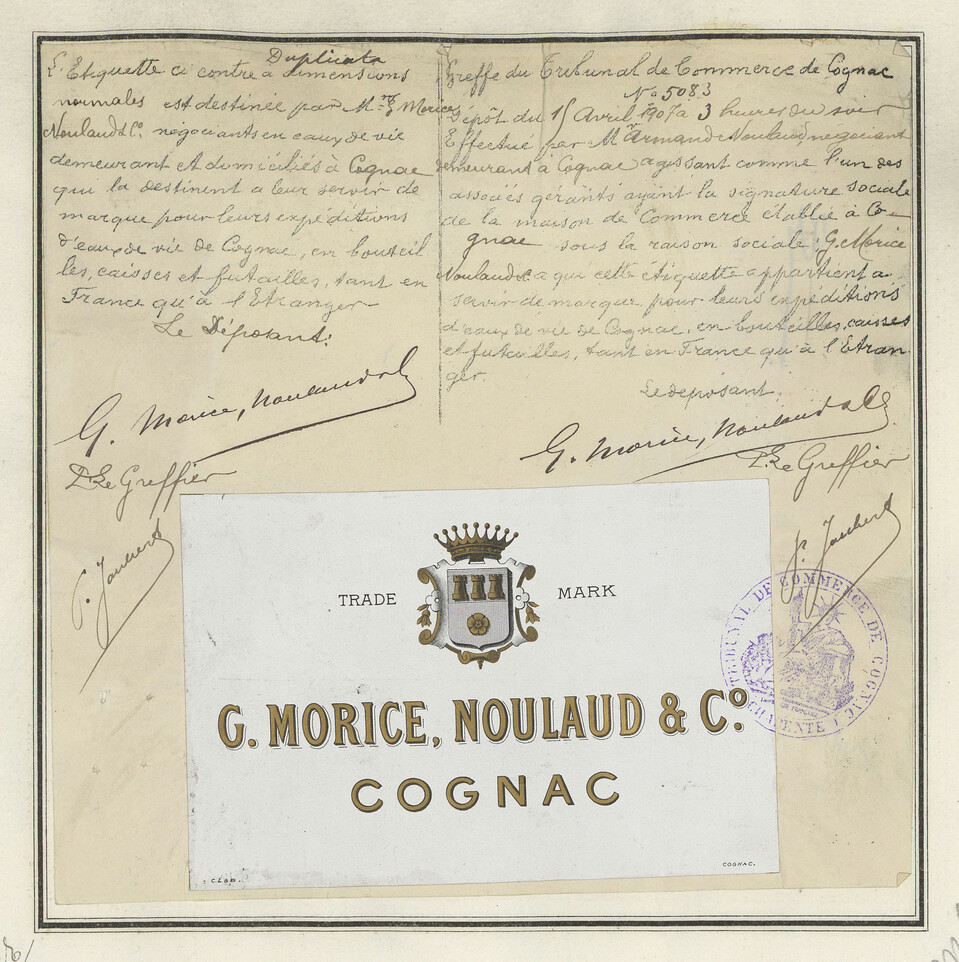 Duplicata
L'Etiquette ci contre a dimensions
normales est destinée par Mrs G. Morice
Noulaud & Co. négociants en eaux de vie
demeurant et domiciliés à Cognac
qui la destinent a leur servir de
marque pour leurs expéditions
d'eaux de vie de Cognac, en bouteil
les, caisses et futailles, tant en
France qu'à l'Etranger
Le Déposant:
G. Morice, Noulaud & Co
Pr Le Greffier
P. Joubert
Greffe du Tribunal de Commerce de Cognac
No 5083
Dépôt du 15 Avril 1907 à 3 heures du soir
Effectué par Mr Armand Noulaud, négociant
demeurant à Cognac agissant comme l'un des
associés gérants ayant la signature sociale
de la maison de Commerce établie à Co-
gnac sous la raison sociale: G. Morice
Noulaud & Co a qui cette étiquette appartient a
servir de marque, pour leurs expéditions
d'eaux de vie de Cognac, en bouteilles, caisses
et futailles, tant en France qu'à l'Etran
ger.
Le deposant:
G. Morice, Noulaud & Co
Pr Le Greffier
P. Joubert
TRADE MARK
G. MORICE, NOULAUD & Co.
COGNAC
C. Lam.
COGNAC.
TRIBUNAL DE COMMERCE DE COGNAC
CHARENTE